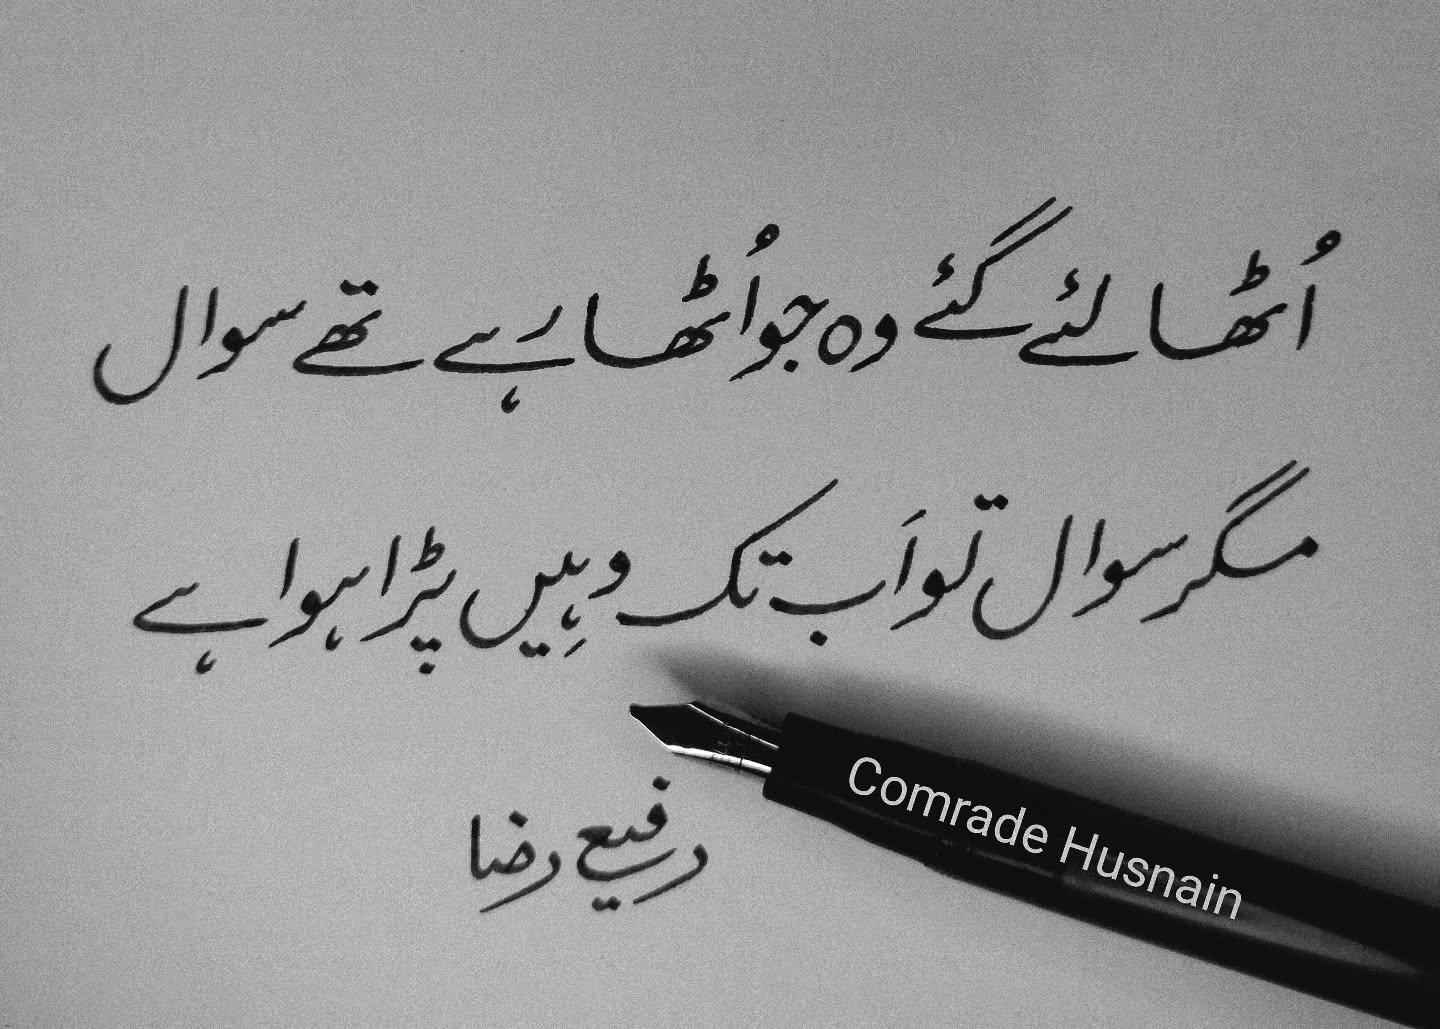 اُٹھا لئے گئے وہ جو اُٹھا رہے تھے سوال
مگر سوال تو اَب تک وہِیں پڑا ہوا ہے
رفیع رضا
Comrade Husnain